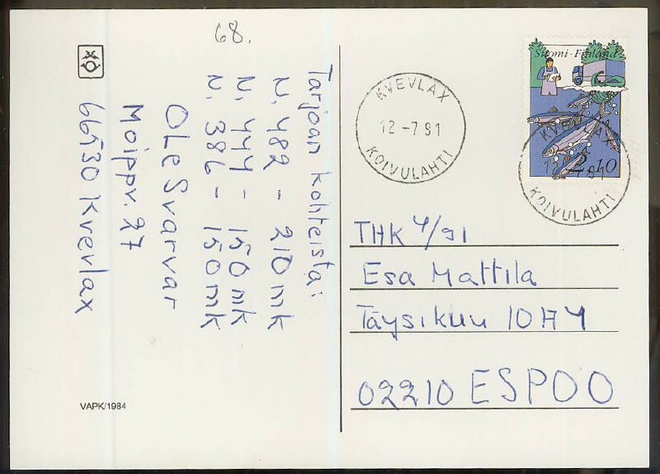 68.
Tarjoan kohteista:
N. 482 - 210 mk
N. 444 - 150 mk
N. 386 - 150 mk
Ole Svarvar
Moippv. 27
66530 Kvevlax
VAPK/1984
KVEVLAX
12 -7 91
KOIVULAHTI
Suomi - Finland
2,10
KVEVLAX
12 -7 91
KOIVULAHTI
THK 4/91
Esa Mattila
Täysikuu 10 A 4
02210 ESPOO